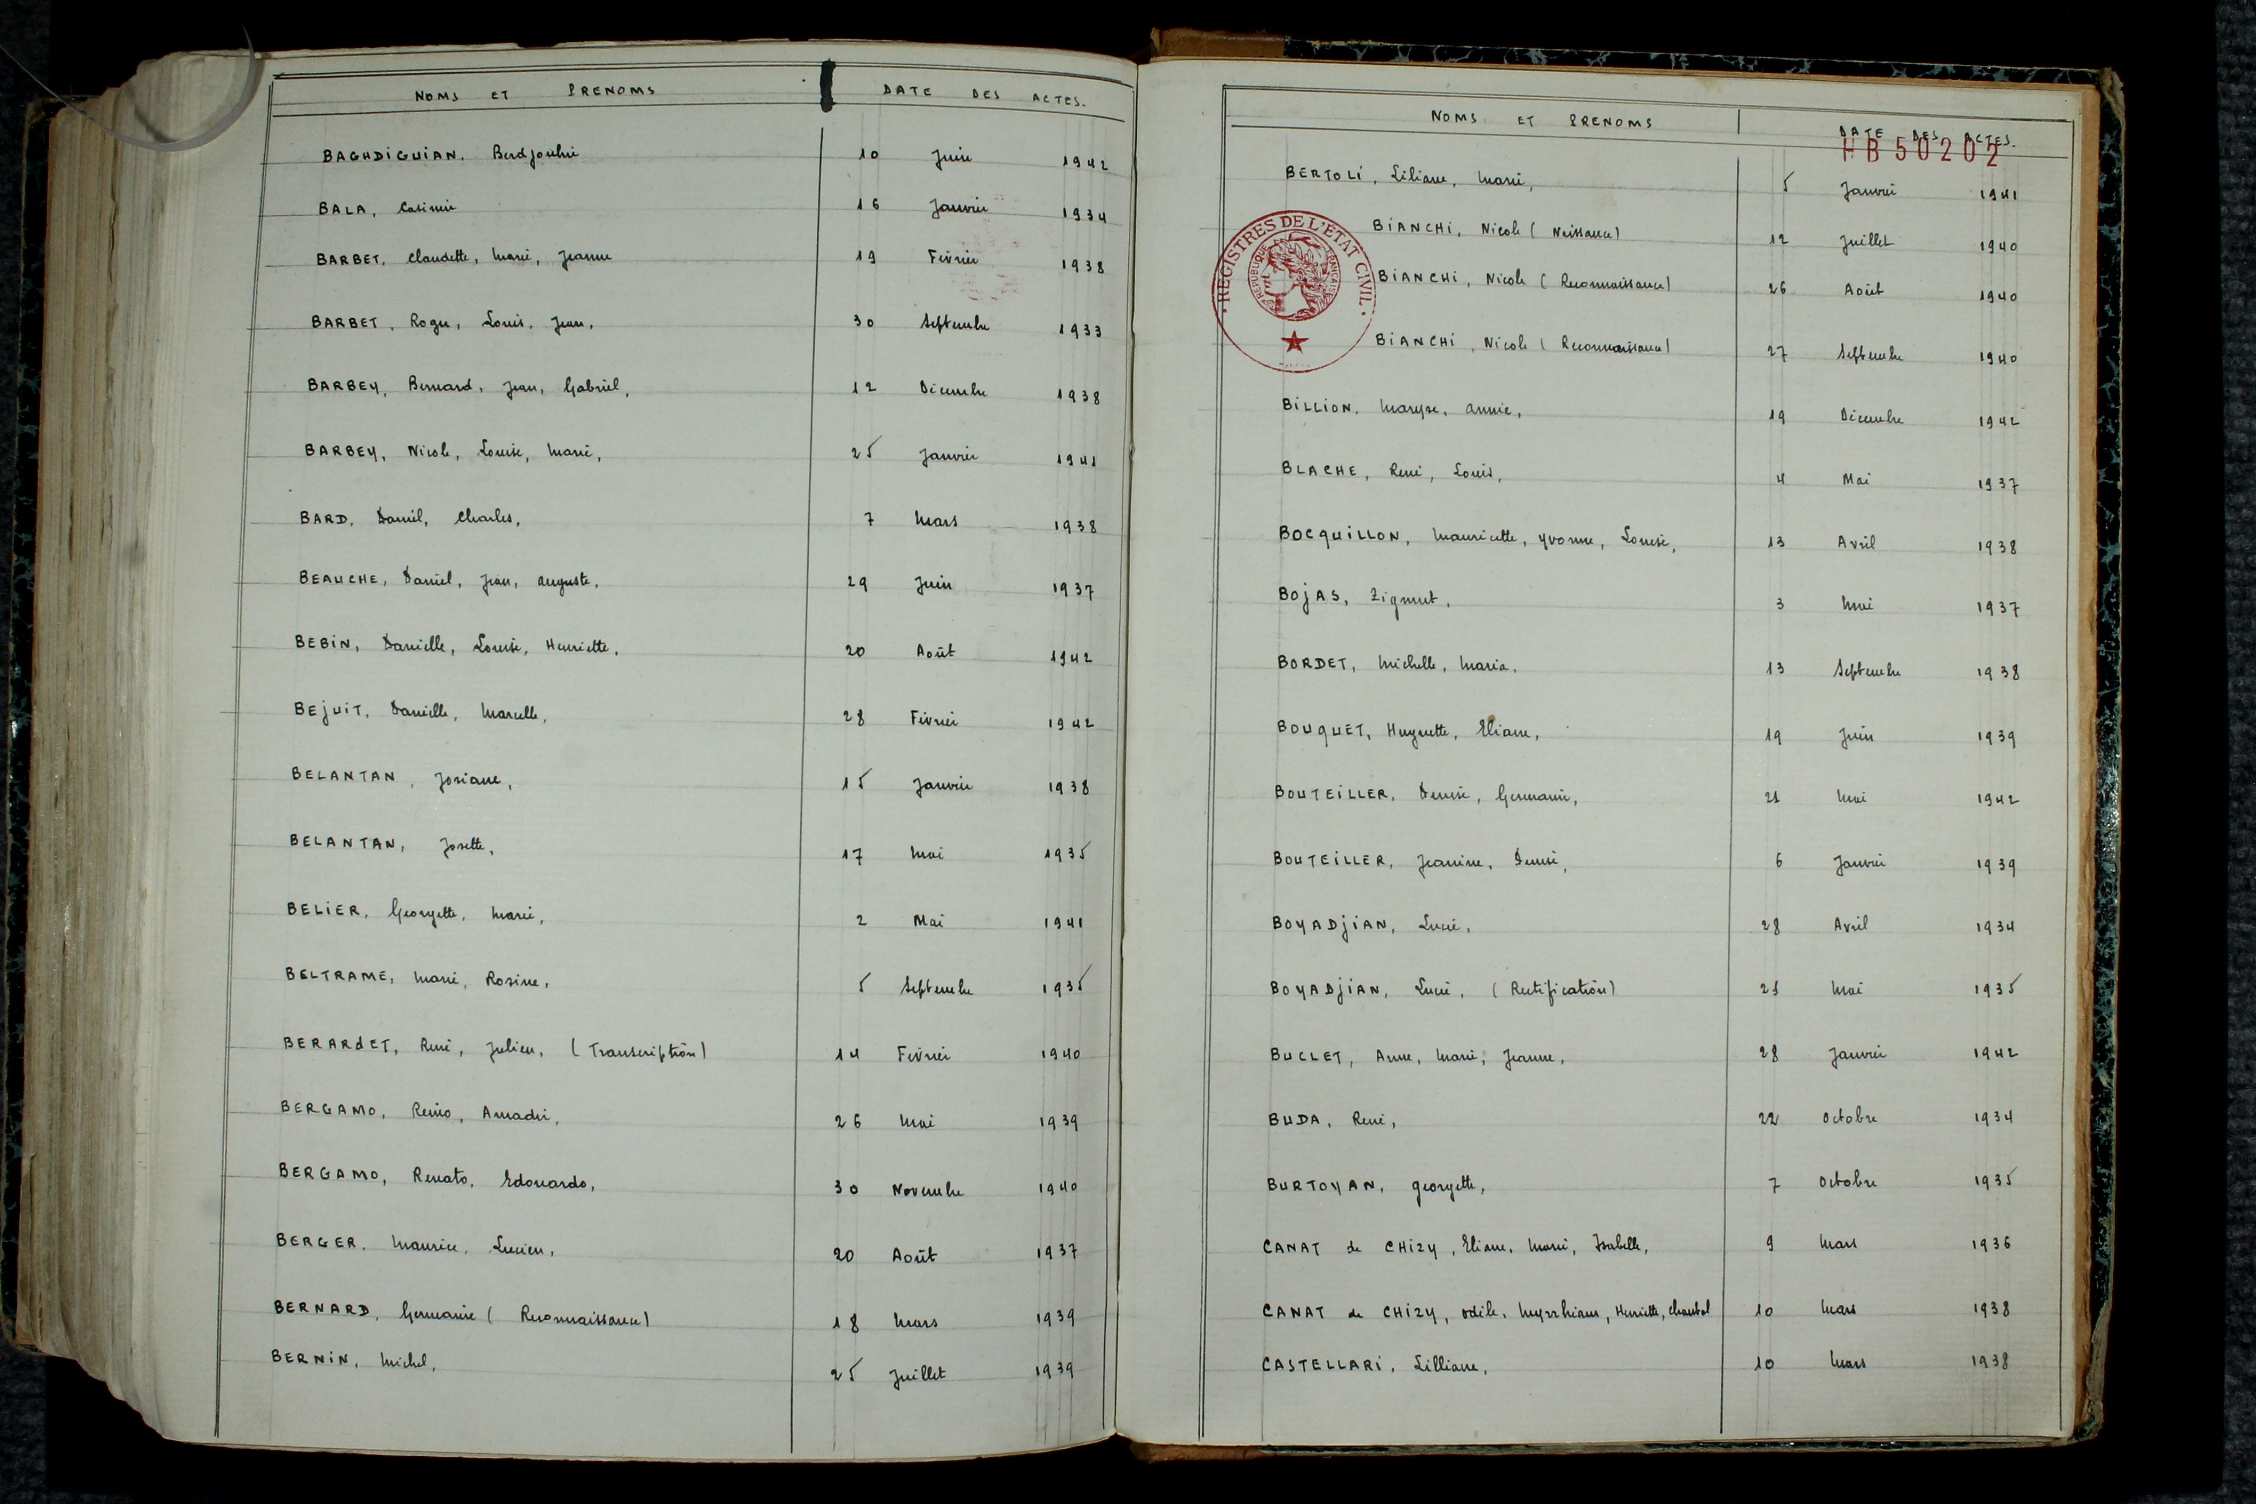 NOMS ET PRENOMS DATE DES ACTES.
BAGHDIGUIAN. Berdjouhie 10 Juin 1942
BALA, Casimir 16 Janvier 1934
BARBET, Claudette, Marie, Jeanne 19 Février 1938
BARBET, Roger, Louis, Jean, 30 Septembre 1933
BARBEY, Bernard, Jean, Gabriel, 12 Décembre 1938
BARBEY, Nicole, Louise, Marie, 25 Janvier 1941
BARD, Daniel, Charles, 7 Mars 1938
BEAUCHE, Daniel, Jean, Auguste, 29 Juin 1937
BEBIN, Danielle, Louise, Henriette, 20 Août 1942
BEJUIT, Danielle, Marcelle, 28 Février 1942
BELANTAN, Josiane, 15 Janvier 1938
BELANTAN, Josette, 17 Mai 1935
BELIER, Georgette, Marie, 2 Mai 1941
BELTRAME, Marie, Rosine, 5 Septembre 1935
BERARDET, René, Julien, (Transcription) 14 Février 1940
BERGAMO, Remo, 26 Mai 1939
BERGAMO, Renato, Edouardo, 30 Novembre 1940
BERGER, Maurice, Lucien, 20 Août 1937
BERNARD, Germaine (Reconnaissance) 18 Mars 1939
BERNIN, Michel, 25 Juillet 1939
NOMS ET PRENOMS DATE DES ACTES.
HB 50202
BERTOLI, Liliane, Marie, 5 Janvier 1941
BIANCHI, Nicole (Naissance) 12 Juillet 1940
BIANCHI, Nicole (Reconnaissance) 26 Août 1940
BIANCHI, Nicole (Reconnaissance) 27 Septembre 1940
REGISTRES DE L'ETAT CIVIL
REPUBLIQUE FRANCAISE
BILLION, Maryse, Annie, 19 Décembre 1942
BLACHE, René, Louis, 4 Mai 1937
BOCQUILLON, Mauricette, Yvonne, Louise, 13 Avril 1938
BOJAS, Zigmut, 3 Mai 1937
BORDET, Michelle, Maria, 13 Septembre 1938
BOUQUET, Huguette, Eliane, 19 Juin 1939
BOUTEILLER, Denise, Germaine, 21 Mai 1942
BOUTEILLER, Jeanine, Denise, 6 Janvier 1939
BOYADJIAN, Lucie, 28 Avril 1934
BOYADJIAN, Lucie, (Rectification) Mai 1935
BUCLET, Anne, Marie, Jeanne, 28 Janvier 1942
BUDA, René, 22 Octobre 1934
BURTOYAN, Georgette, 7 Octobre 1935
CANAT de CHIZY, Eliane, Marie, Isabelle, 9 Mars 1936
CANAT de CHIZY, Odile, Henriette, Chantal 10 Mars 1938
CASTELLARI, Lilliane, 10 Mars 1938